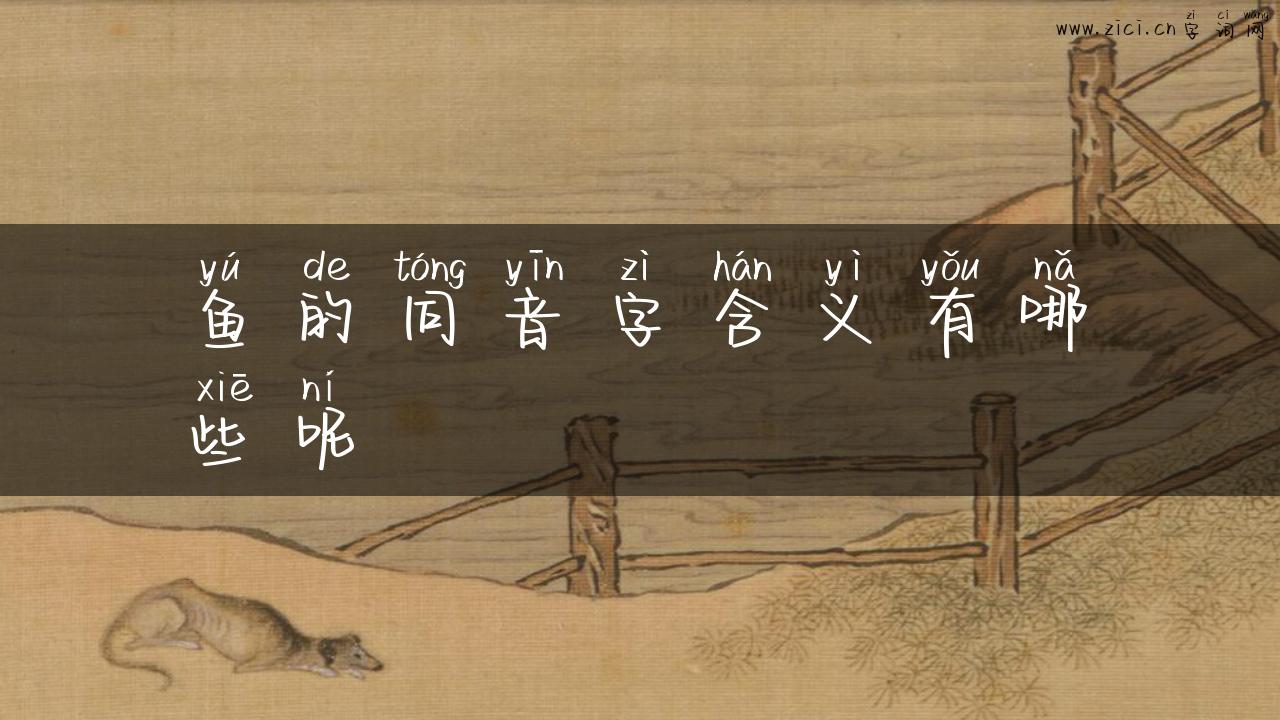 zì cí wǎng
www.zici.cn 字词网
yú de tóng yīn zì hán yì yǒu nǎ
鱼的同音字含义有哪
xiē ní
些呢